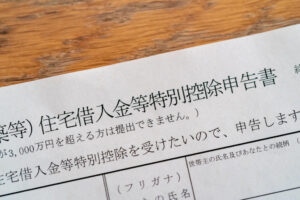 等）住宅借入金等特別控除申告書
が3,000万円を超える方は提出できません。）
宅借入金等特別控除を受けたいので、申告します
（フリガナ）
の氏名
世帯主の氏名及びあなたとの続柄